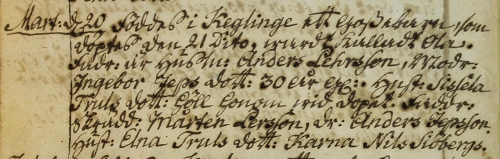 Mart: d 20 Föddes i Keglinge ett Gossebarn, som
döptes den 21 Dito, wardt kalladt Ola.
Fadr: är Husm: Anders Lehrsson, Modr:
Ingebor Jeps dott: 30 åhr etc: Hust: Sissela
Truls dott: Göll gongin wid dopet. Faddr:
Mårten Persson, dr: Anders Jepsson.
Hust: Elna Truls dott: Karna Nils Siöbergs.